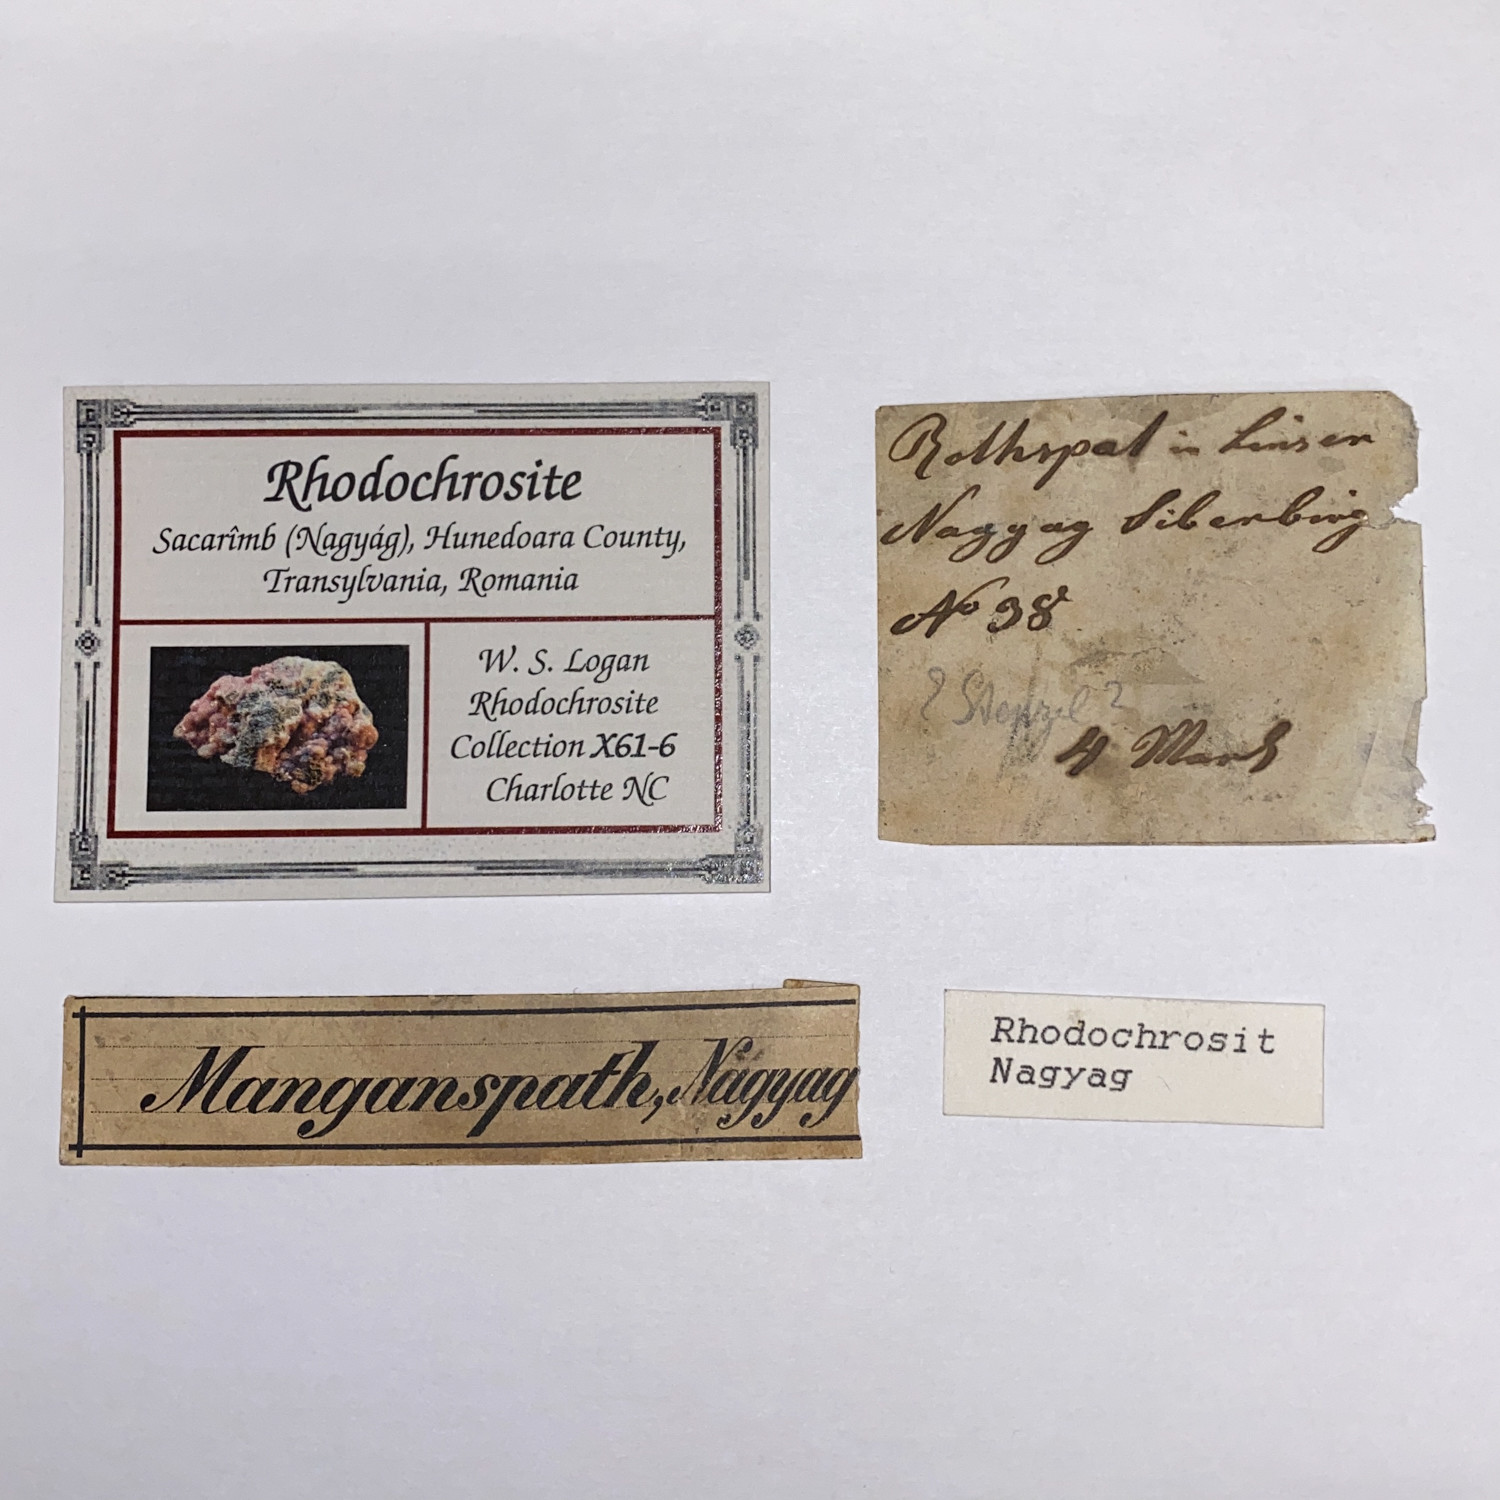 Rhodochrosite
Sacarîmb (Nagyág), Hunedoara County,
Transylvania, Romania
W. S. Logan
Rhodochrosite
Collection X61-6
Charlotte NC
Rothspat in Linsen
Nagyag Sibenbirg
No 38
4 Mark
Manganspath, Nagyag
Rhodochrosit
Nagyag